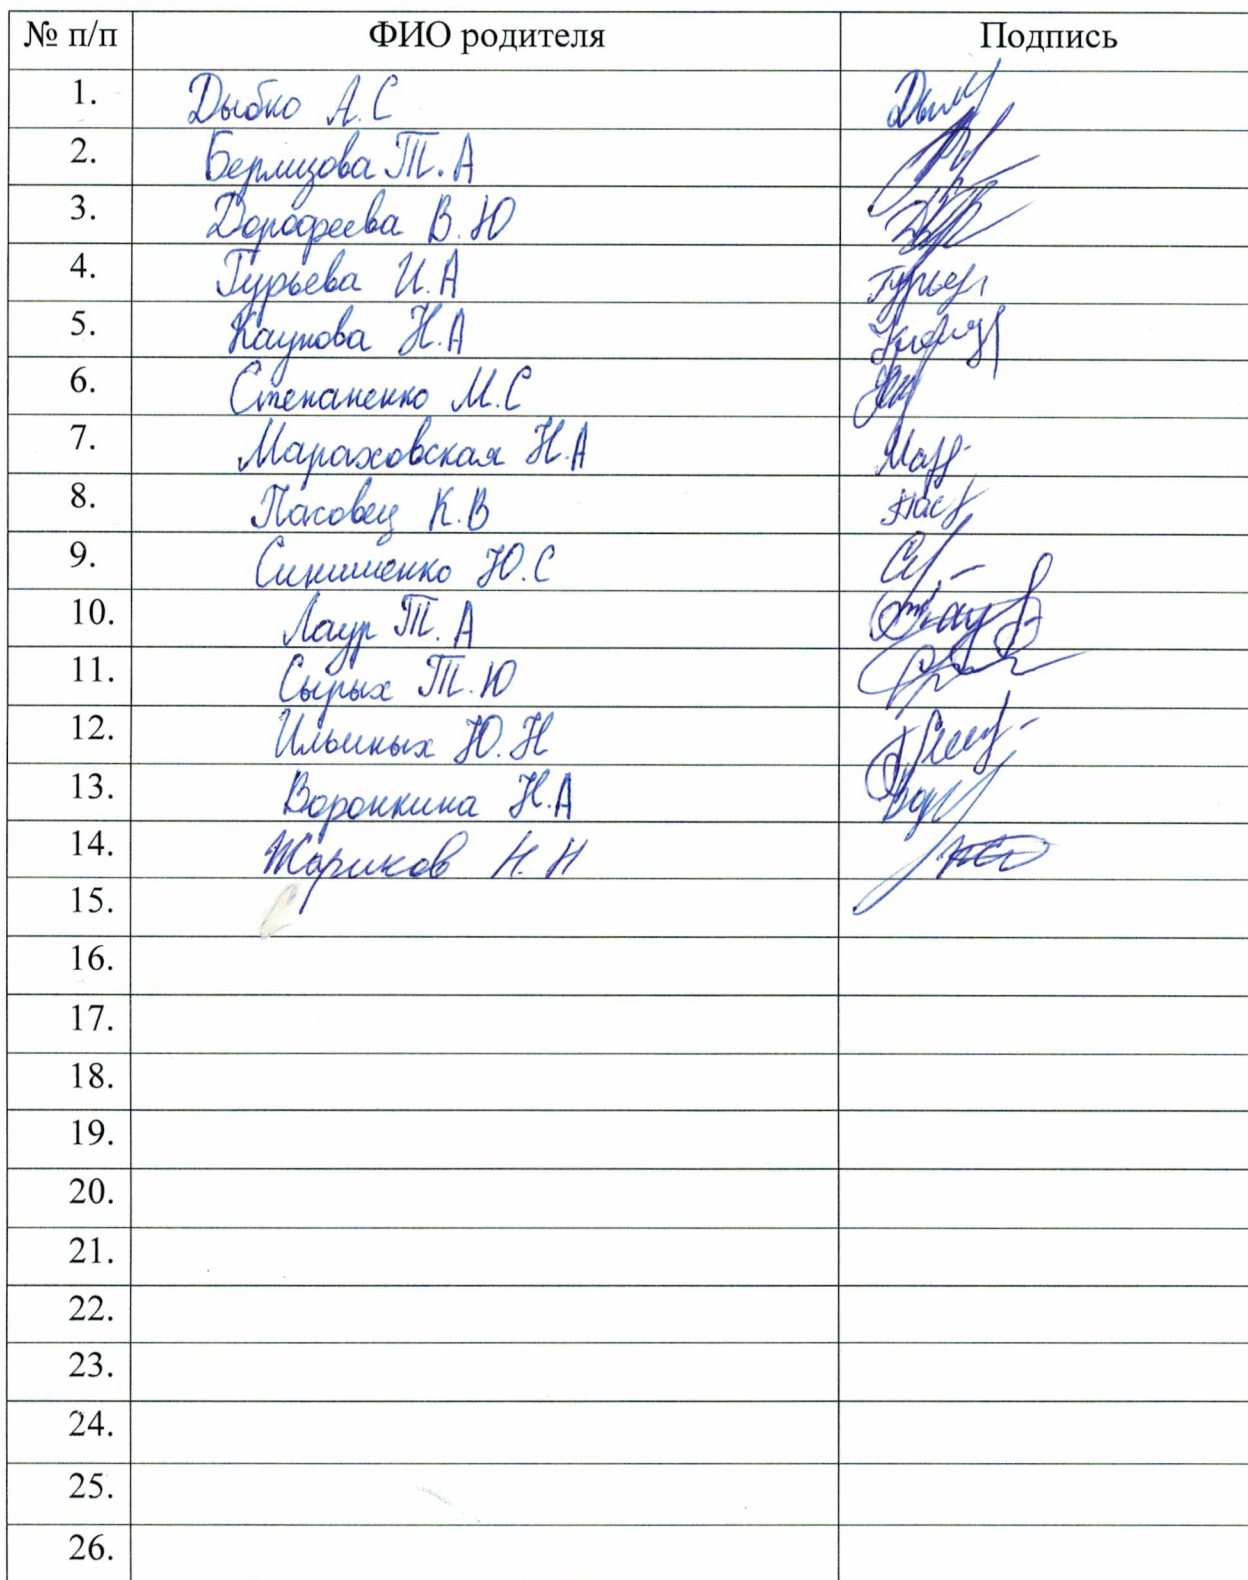 № п/п ФИО родителя Подпись
1. Дыбко А.С
2. Берлизова Т.А
3. Дорофеева В.Ю
4. Гурьева И.А
5. Каунова Н.А
6. Степаненко М.С
7. Мараховская Н.А
8. Пасовец К.В
9. Синишенко Ю.С
10. Лаур Т.А
11. Сырых Т.Ю
12. Ильиных Ю.Н
13. Воронкина Н.А
14. Жариков Н.Н
15.
16.
17.
18.
19.
20.
21.
22.
23.
24.
25.
26.